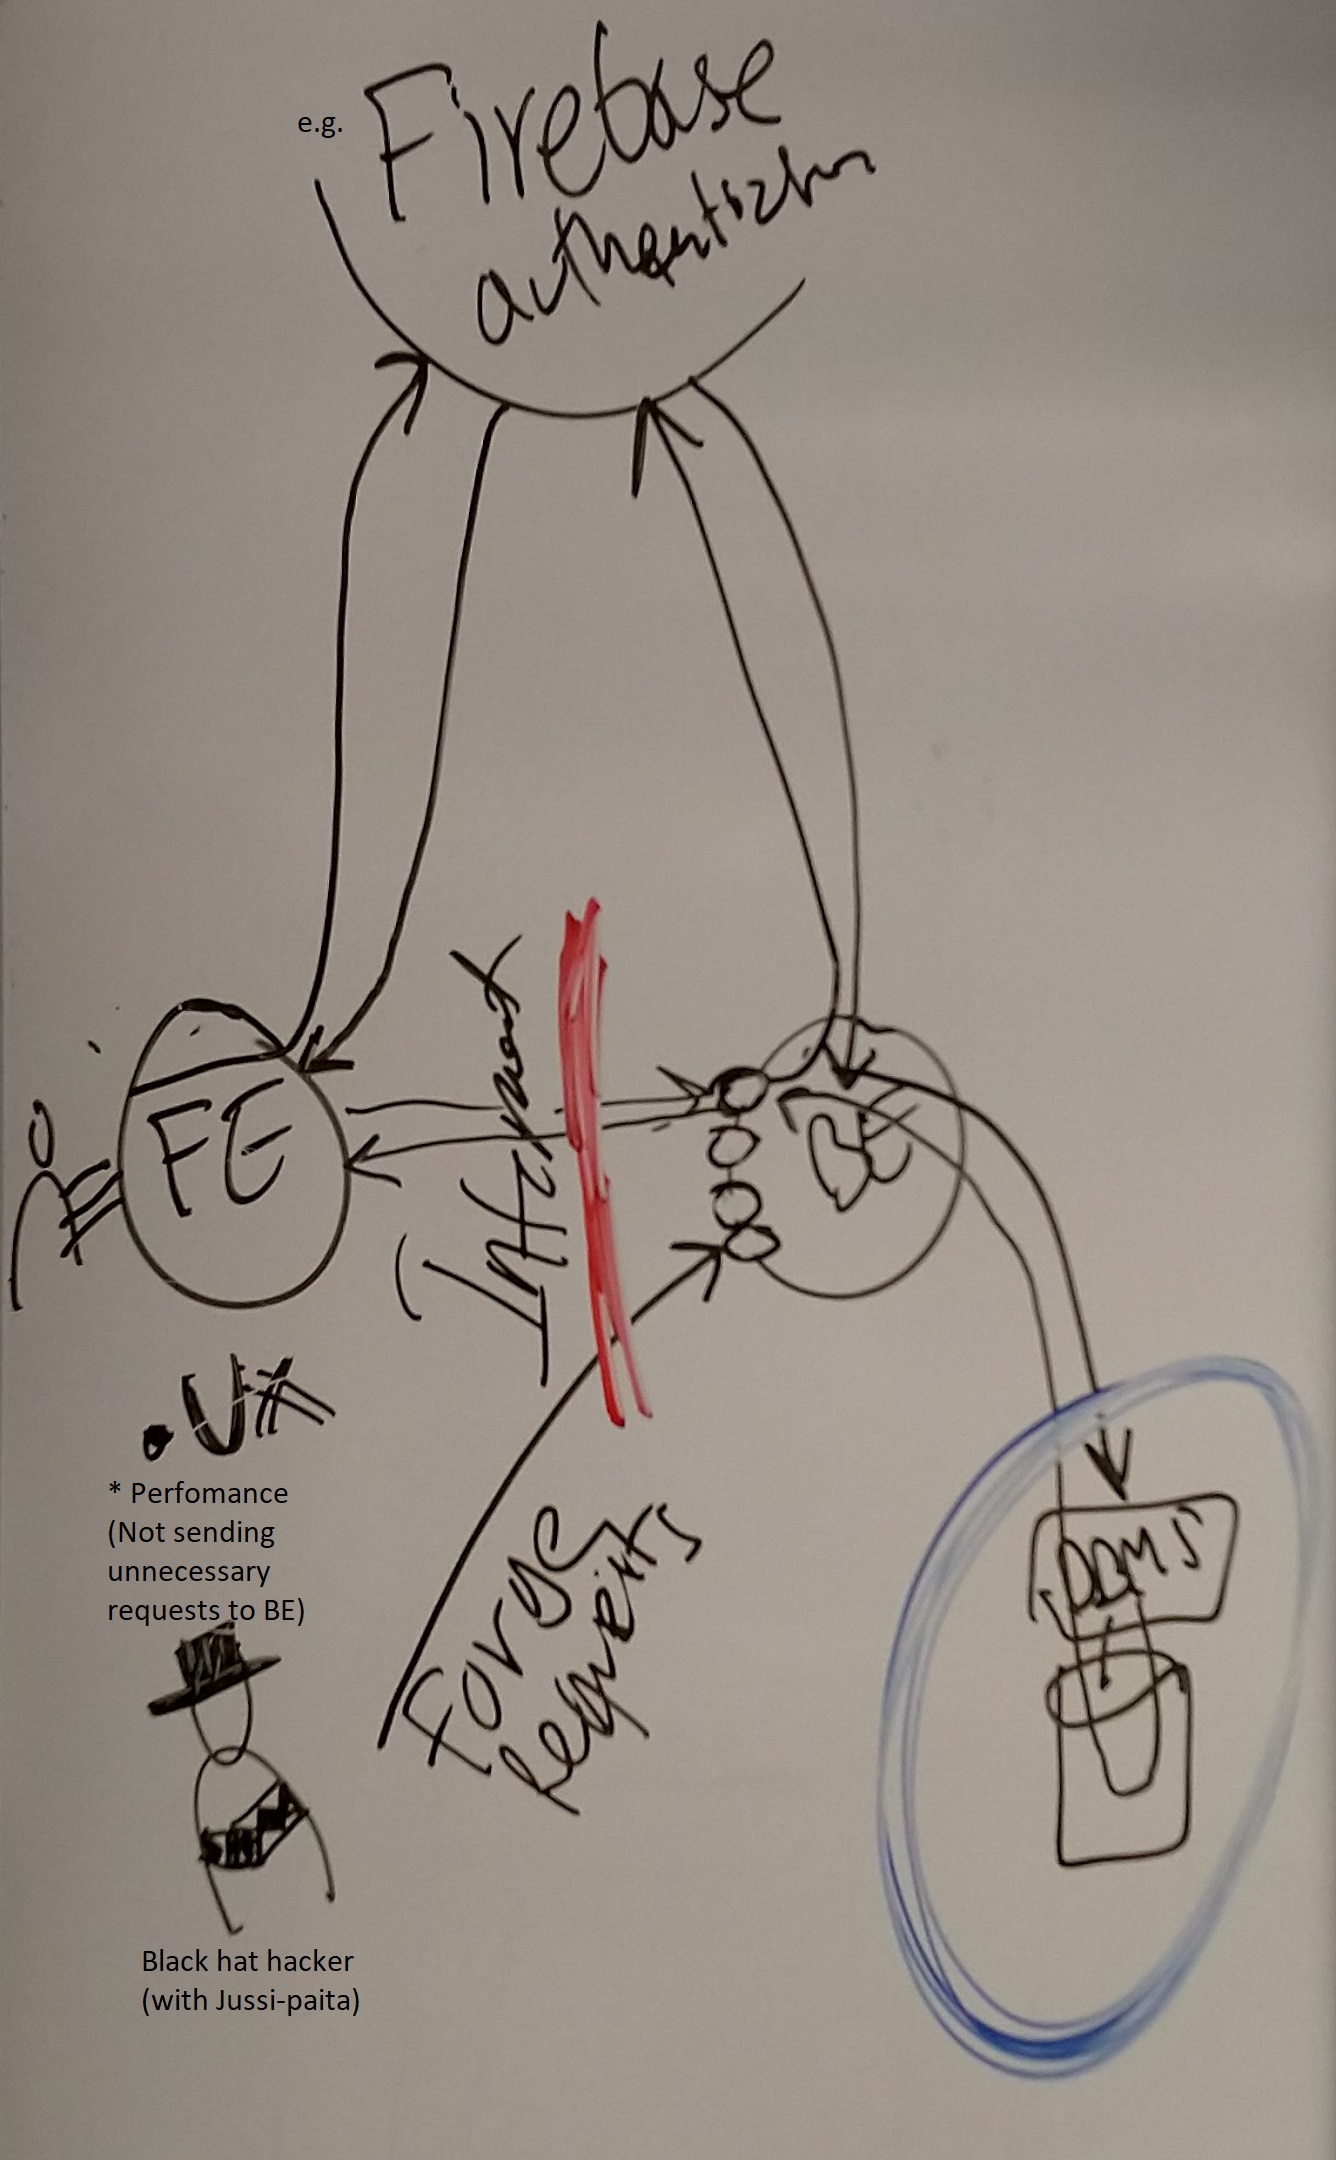 e.g.
Firebase
authentization
FE
Internet
BE
.UX
* Perfomance
(Not sending
unnecessary
requests to BE)
Forge
Requests
DBMS
Black hat hacker
(with Jussi-paita)